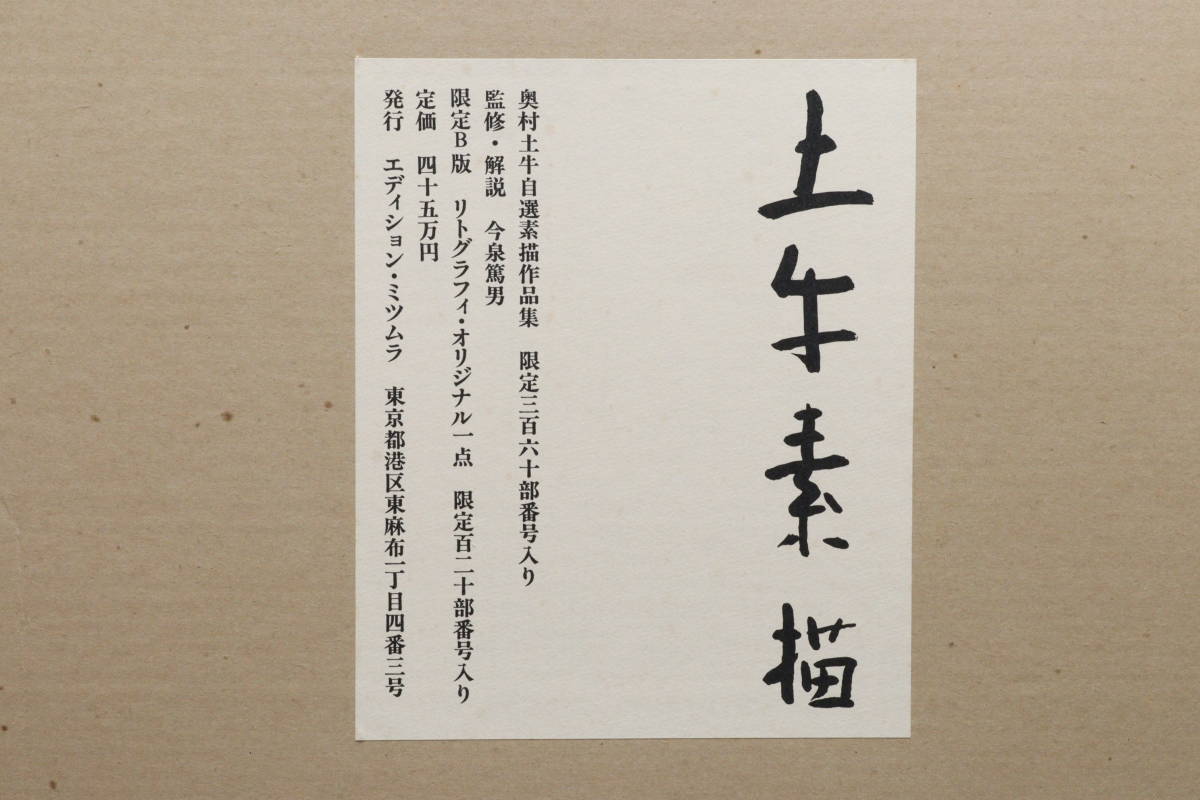 土牛素描
奥村土牛自選素描作品集　限定三百六十部番号入り
監修・解説　今泉篤男
限定B版　リトグラフィ・オリジナル一点　限定百二十部番号入り
定価　四十五万円
発行　エディション・ミツムラ　東京都港区東麻布一丁目四番三号